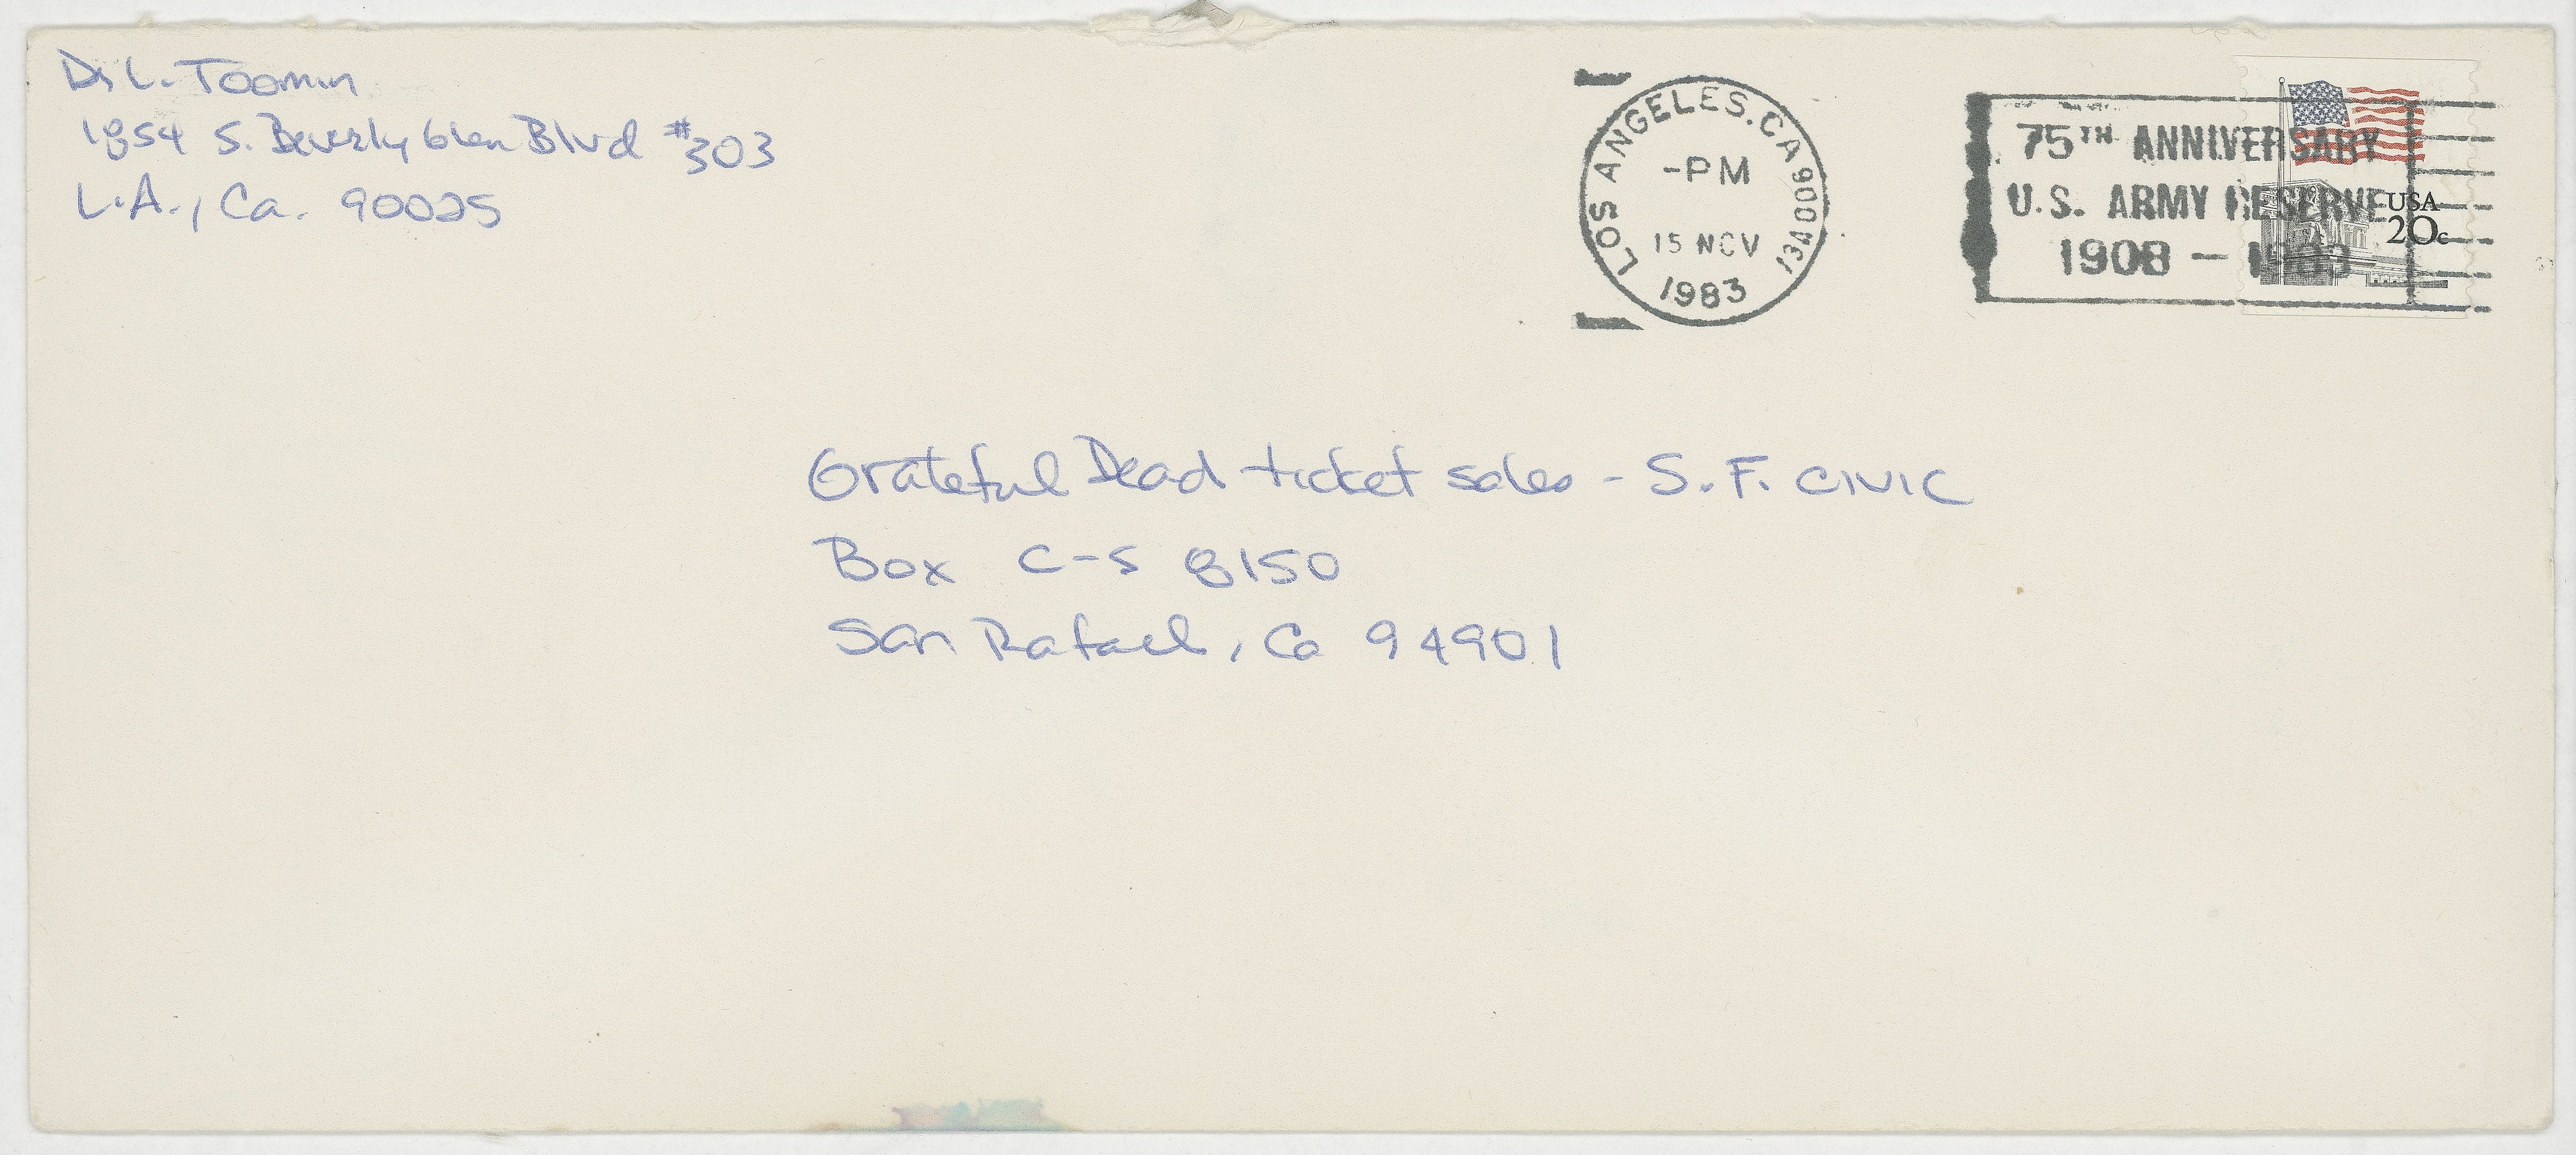 D. L. Toomin
1854 S. Beverly Glen Blvd #303
L.A., Ca. 90025
LOS ANGELES, CA 900
-PM
15 NOV
1983
13A
75TH ANNIVERSARY
U.S. ARMY RESERVE
1908 - 1983
USA
20c
Grateful Dead ticket sales - S.F. CIVIC
Box C-S 8150
San Rafael, Ca 94901